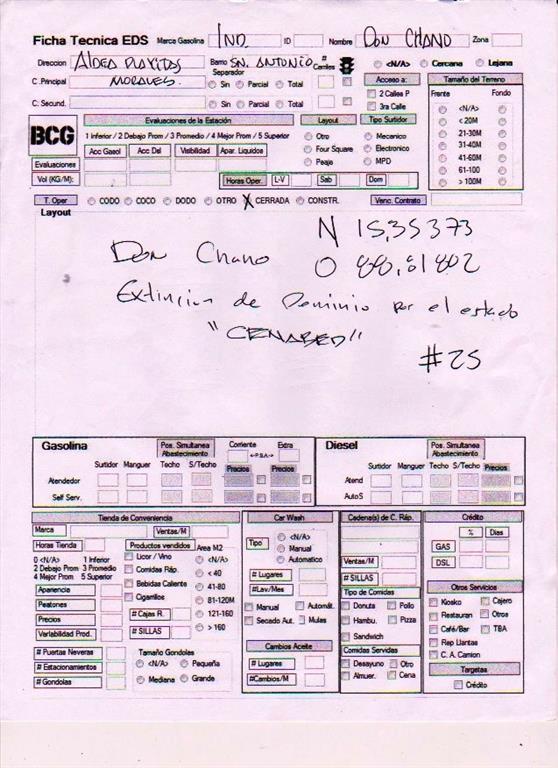 Ficha Tecnica EDS Marca Gasolina IND. ID Nombre DON CHANO Zona
Direccion ALDEA PLAYITAS Barrio SN. ANTONIO # Carriles <N/A> Cercana Lejana
C. Principal MORALES. Separador Sin Parcial Total Acceso a: Tamaño del Terreno
C. Secund. Sin Parcial Total 2 Calles P 3ra Calle Frente Fondo
<N/A>
< 20M
21-30M
31-40M
41-60M
61-100
> 100M
BCG Evaluaciones de la Estación Layout Tipo Surtidor
1 Inferior / 2 Debajo Prom / 3 Promedio / 4 Mejor Prom / 5 Superior Otro Mecanico
Acc Gasol Acc Dsl Visibilidad Apar. Liquidos Four Square Electronico
Evaluaciones Peaje MPD
Vol (KG/M): Horas Oper. L-V Sab Dom
T. Oper CODO COCO DODO OTRO X CERRADA CONSTR. Venc. Contrato
Layout
N 15,35373
Don Chano O 88,81802
Extincion de Dominio por el estado
"CENABED"
#25
Gasolina Pos. Simultanea Abastecimiento Corriente Extra <-P.B.A.-> Diesel Pos. Simultanea Abastecimiento
Surtidor Manguer Techo S/Techo Precios Precios Surtidor Manguer Techo S/Techo Precios
Atendedor Atend
Self Serv. AutoS
Tienda de Conveniencia Car Wash Cadena(s) de C. Ráp. Crédito
Marca Ventas/M % Dias
Horas Tienda Productos vendidos Area M2 Tipo <N/A> Manual Automatico GAS
0 <N/A> 1 Inferior Licor / Vino <N/A> Ventas/M DSL
2 Debajo Prom 3 Promedio Comidas Ráp. < 40 # Lugares # SILLAS
4 Mejor Prom 5 Superior Bebidas Caliente 41-80 #Lav/Mes Tipo de Comidas Otros Servicios
Apariencia Cigarrilos 81-120M Manual Automát. Donuts Pollo Kosko Cajero
Peatones # Cajas R. 121-160 Secado Aut. Mulas Hambu. Pizza Restauran Otros
Precios # SILLAS > 160 Sandwich Café/Bar TBA
Variabilidad Prod. Cambios Aceite Comidas Servidas Rep Llantas
# Puertas Neveras Tamaño Gondolas # Lugares Desayuno Otro C. A. Camion
# Estacionamientos <N/A> Pequeña #Cambios/M Almuer. Cena Targetas
# Gondolas Mediana Grande Crédito